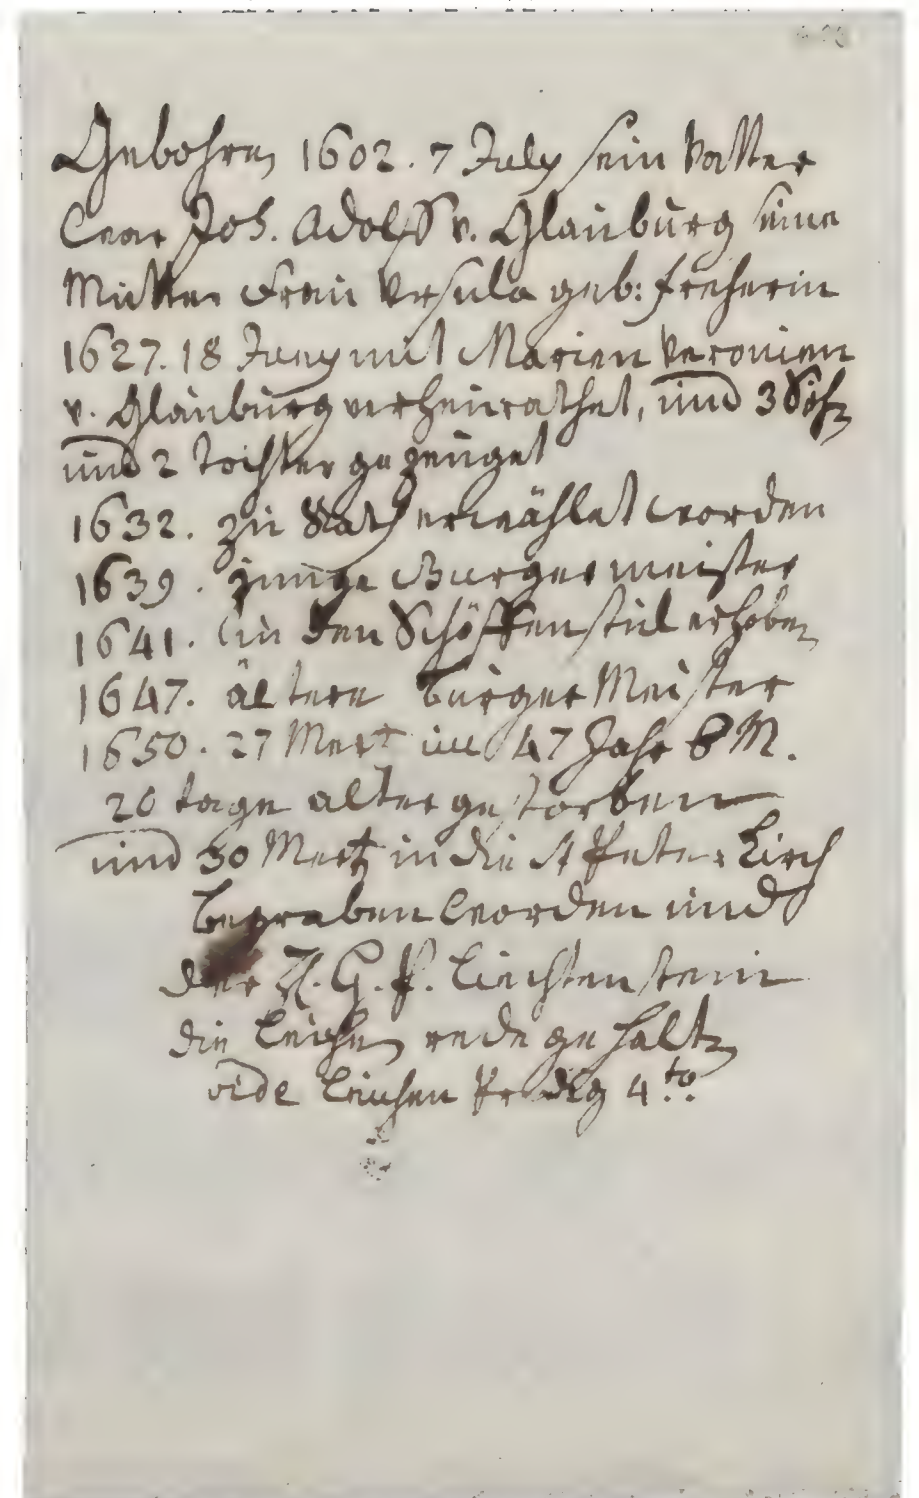 Gebohren 1602. 7 July sein Vatter
war Joh. Adolff v. Glauburg seine
Mutter Frau Ursula geb: Freherin
1627. 18 Juny mit Marien Veronicen
v. Glauburg verheurathet, und 3 Söhn
und 2 Töchter gezeuget
1632. zu Rath erwählet worden
1639. Junge Burgermeister
1641. in den Schöffenstul erhoben
1647. ältere burger Meister
1650. 27 Mert im 47 Jahr 8 M.
20 tage alter gestorben
und 30 Mertz in die St Peter Kirch
begraben worden und
der H. G. P. Liechtenstein
die Leichen rede gehalten
vide Leichen Predig 4.to